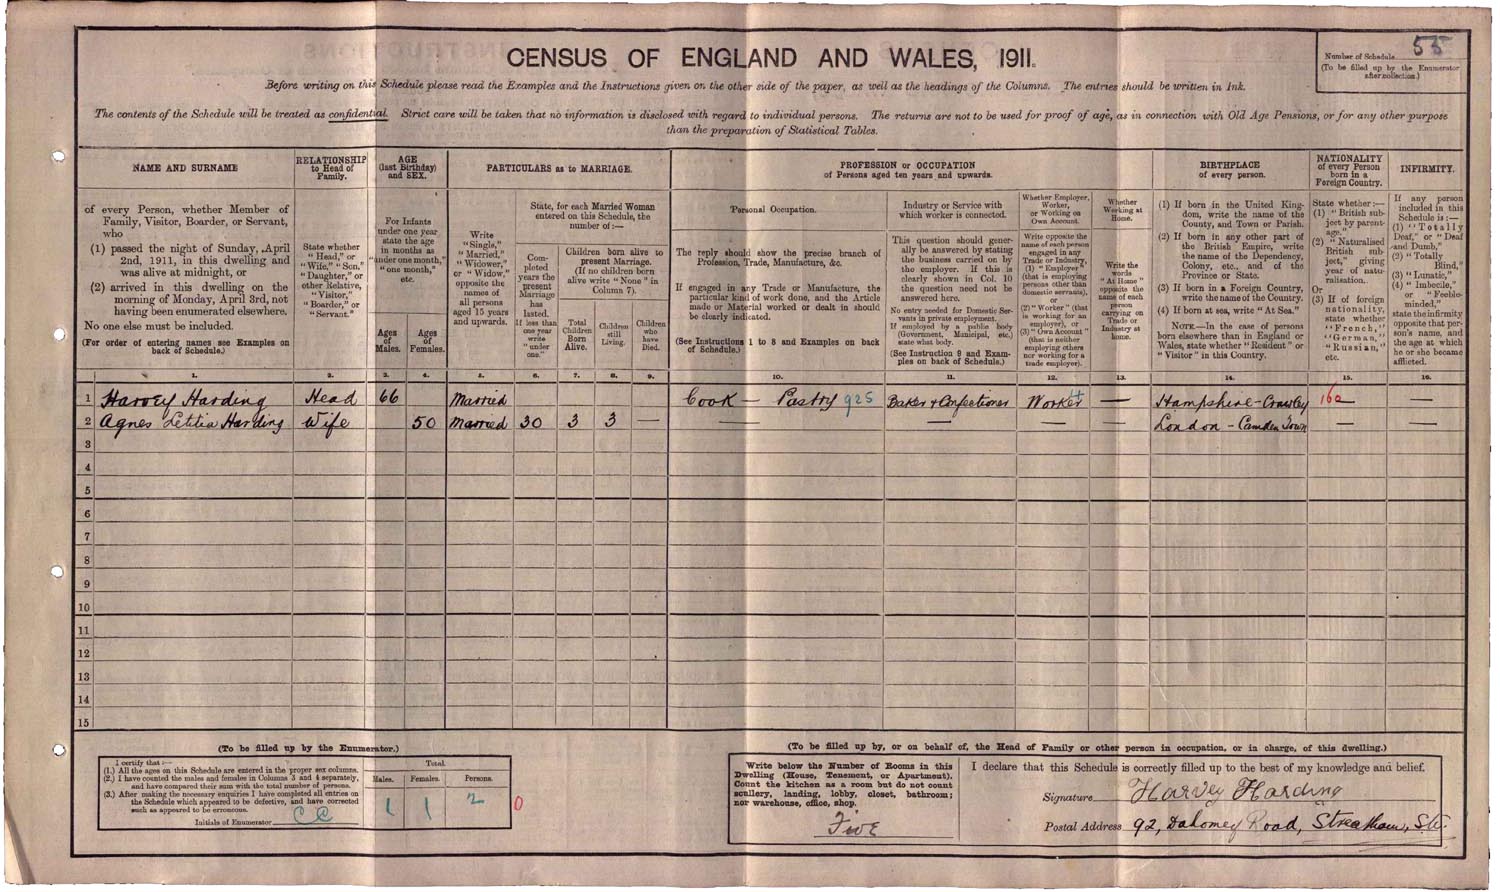 CENSUS OF ENGLAND AND WALES, 1911.
Number of Schedule 55
(To be filled up by the Enumerator
after collection.)
Before writing on this Schedule please read the Examples and the Instructions given on the other side of the paper, as well as the headings of the Columns. The entries should be written in Ink.
The contents of the Schedule will be treated as confidential. Strict care will be taken that no information is disclosed with regard to individual persons. The returns are not to be used for proof of age, as in connection with Old Age Pensions, or for any other purpose
than the preparation of Statistical Tables.
NAME AND SURNAME
of every Person, whether Member of
Family, Visitor, Boarder, or Servant,
who
(1) passed the night of Sunday, April
2nd, 1911, in this dwelling and
was alive at midnight, or
(2) arrived in this dwelling on the
morning of Monday, April 3rd, not
having been enumerated elsewhere.
No one else must be included.
(For order of entering names see Examples on
back of Schedule.)
RELATIONSHIP
to Head of
Family.
State whether
"Head," or
"Wife," "Son,"
"Daughter," or
other Relative,
"Visitor,"
"Boarder," or
"Servant."
AGE
(last Birthday)
and SEX.
For Infants
under one year
state the age
in months as
"under one month,"
"one month,"
etc.
Ages
of
Males.
Ages
of
Females.
PARTICULARS as to MARRIAGE.
Write
"Single,"
"Married,"
"Widower,"
or "Widow,"
opposite the
names of
all persons
aged 15 years
and upwards.
State, for each Married Woman
entered on this Schedule, the
number of:—
Completed
years the
present
Marriage
has
lasted.
If less than
one year
write
"under
one."
Children born alive to
present Marriage.
(If no children born
alive write "None" in
Column 7).
Total
Children
Born
Alive.
Children
still
Living.
Children
who
have
Died.
PROFESSION or OCCUPATION
of Persons aged ten years and upwards.
Personal Occupation.
The reply should show the precise branch of
Profession, Trade, Manufacture, &c.
If engaged in any Trade or Manufacture, the
particular kind of work done, and the Article
made or Material worked or dealt in should
be clearly indicated.
(See Instructions 1 to 8 and Examples on back
of Schedule.)
Industry or Service with
which worker is connected.
This question should gener-
ally be answered by stating
the business carried on by
the employer. If this is
clearly shown in Col. 10
the question need not be
answered here.
No entry needed for Domestic Ser-
vants in private employment.
If employed by a public body
(Government, Municipal, etc.)
state what body.
(See Instruction 9 and Exam-
ples on back of Schedule.)
Whether Employer,
Worker,
or Working on
Own Account.
Write opposite the
name of each person
engaged in any
Trade or Industry,
(1) "Employer"
(that is employing
persons other than
domestic servants),
or
(2) "Worker" (that
is working for an
employer), or
(3) "Own Account"
(that is neither
employing others
nor working for a
trade employer).
Whether
Working at
Home.
Write the
words
"At Home"
opposite the
name of each
person
carrying on
Trade or
Industry at
home.
BIRTHPLACE
of every person.
(1) If born in the United King-
dom, write the name of the
County, and Town or Parish.
(2) If born in any other part of
the British Empire, write
the name of the Dependency,
Colony, etc., and of the
Province or State.
(3) If born in a Foreign Country,
write the name of the Country.
(4) If born at sea, write "At Sea."
NOTE.—In the case of persons
born elsewhere than in England or
Wales, state whether "Resident" or
"Visitor" in this Country.
NATIONALITY
of every Person
born in a
Foreign Country.
State whether:—
(1) "British sub-
ject by parent-
age."
(2) "Naturalised
British sub-
ject," giving
year of natu-
ralisation.
Or
(3) If of foreign
nationality,
state whether
"French,"
"German,"
"Russian,"
etc.
INFIRMITY.
If any person
included in this
Schedule is:—
(1) "Totally
Deaf," or "Deaf
and Dumb,"
(2) "Totally
Blind,"
(3) "Lunatic,"
(4) "Imbecile,"
or "Feeble-
minded,"
state the infirmity
opposite that per-
son's name, and
the age at which
he or she became
afflicted.
1. 2. 3. 4. 5. 6. 7. 8. 9. 10. 11. 12. 13. 14. 15. 16.
1 Harvey Harding Head 66 Married Cook — Pastry 925 Baker & Confectioner Worker 4 — Hampshire - Crawley 160 — —
2 Agnes Letitia Harding Wife 50 Married 30 3 3 — — — — — London - Camden Town — —
3
4
5
6
7
8
9
10
11
12
13
14
15
(To be filled up by the Enumerator.)
I certify that:—
(1.) All the ages on this Schedule are entered in the proper sex columns.
(2.) I have counted the males and females in Columns 3 and 4 separately,
and have compared their sum with the total number of persons.
(3.) After making the necessary enquiries I have completed all entries on
the Schedule which appeared to be defective, and have corrected
such as appeared to be erroneous.
Initials of Enumerator CC
Total.
Males. Females. Persons.
1 1 2 0
(To be filled up by, or on behalf of, the Head of Family or other person in occupation, or in charge, of this dwelling.)
Write below the Number of Rooms in this
Dwelling (House, Tenement, or Apartment).
Count the kitchen as a room but do not count
scullery, landing, lobby, closet, bathroom;
nor warehouse, office, shop.
Five
I declare that this Schedule is correctly filled up to the best of my knowledge and belief.
Signature Harvey Harding
Postal Address 92, Dahomey Road, Streatham, S.W.